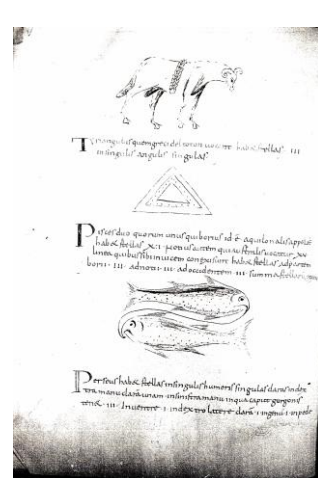 Triangulus quem greci deltoton vocant habet stellas III
in singulis angulis singulas
Pisces duo quorum unus qui borius id ē aquilonalis appel
habet stellas X I notius autem qui australis vocatur XV
linea quibus sibi invicem conexi sunt habet stellas ad partem
borii III ad notii III ad occidentem III summa stellarum
Perseus habet stellas in singulis humeris singulas claras in dex
tra manu clarā unam in sinistra manu in qua caput gorgonis
tenet III In ventre I in dextro latere clarā I